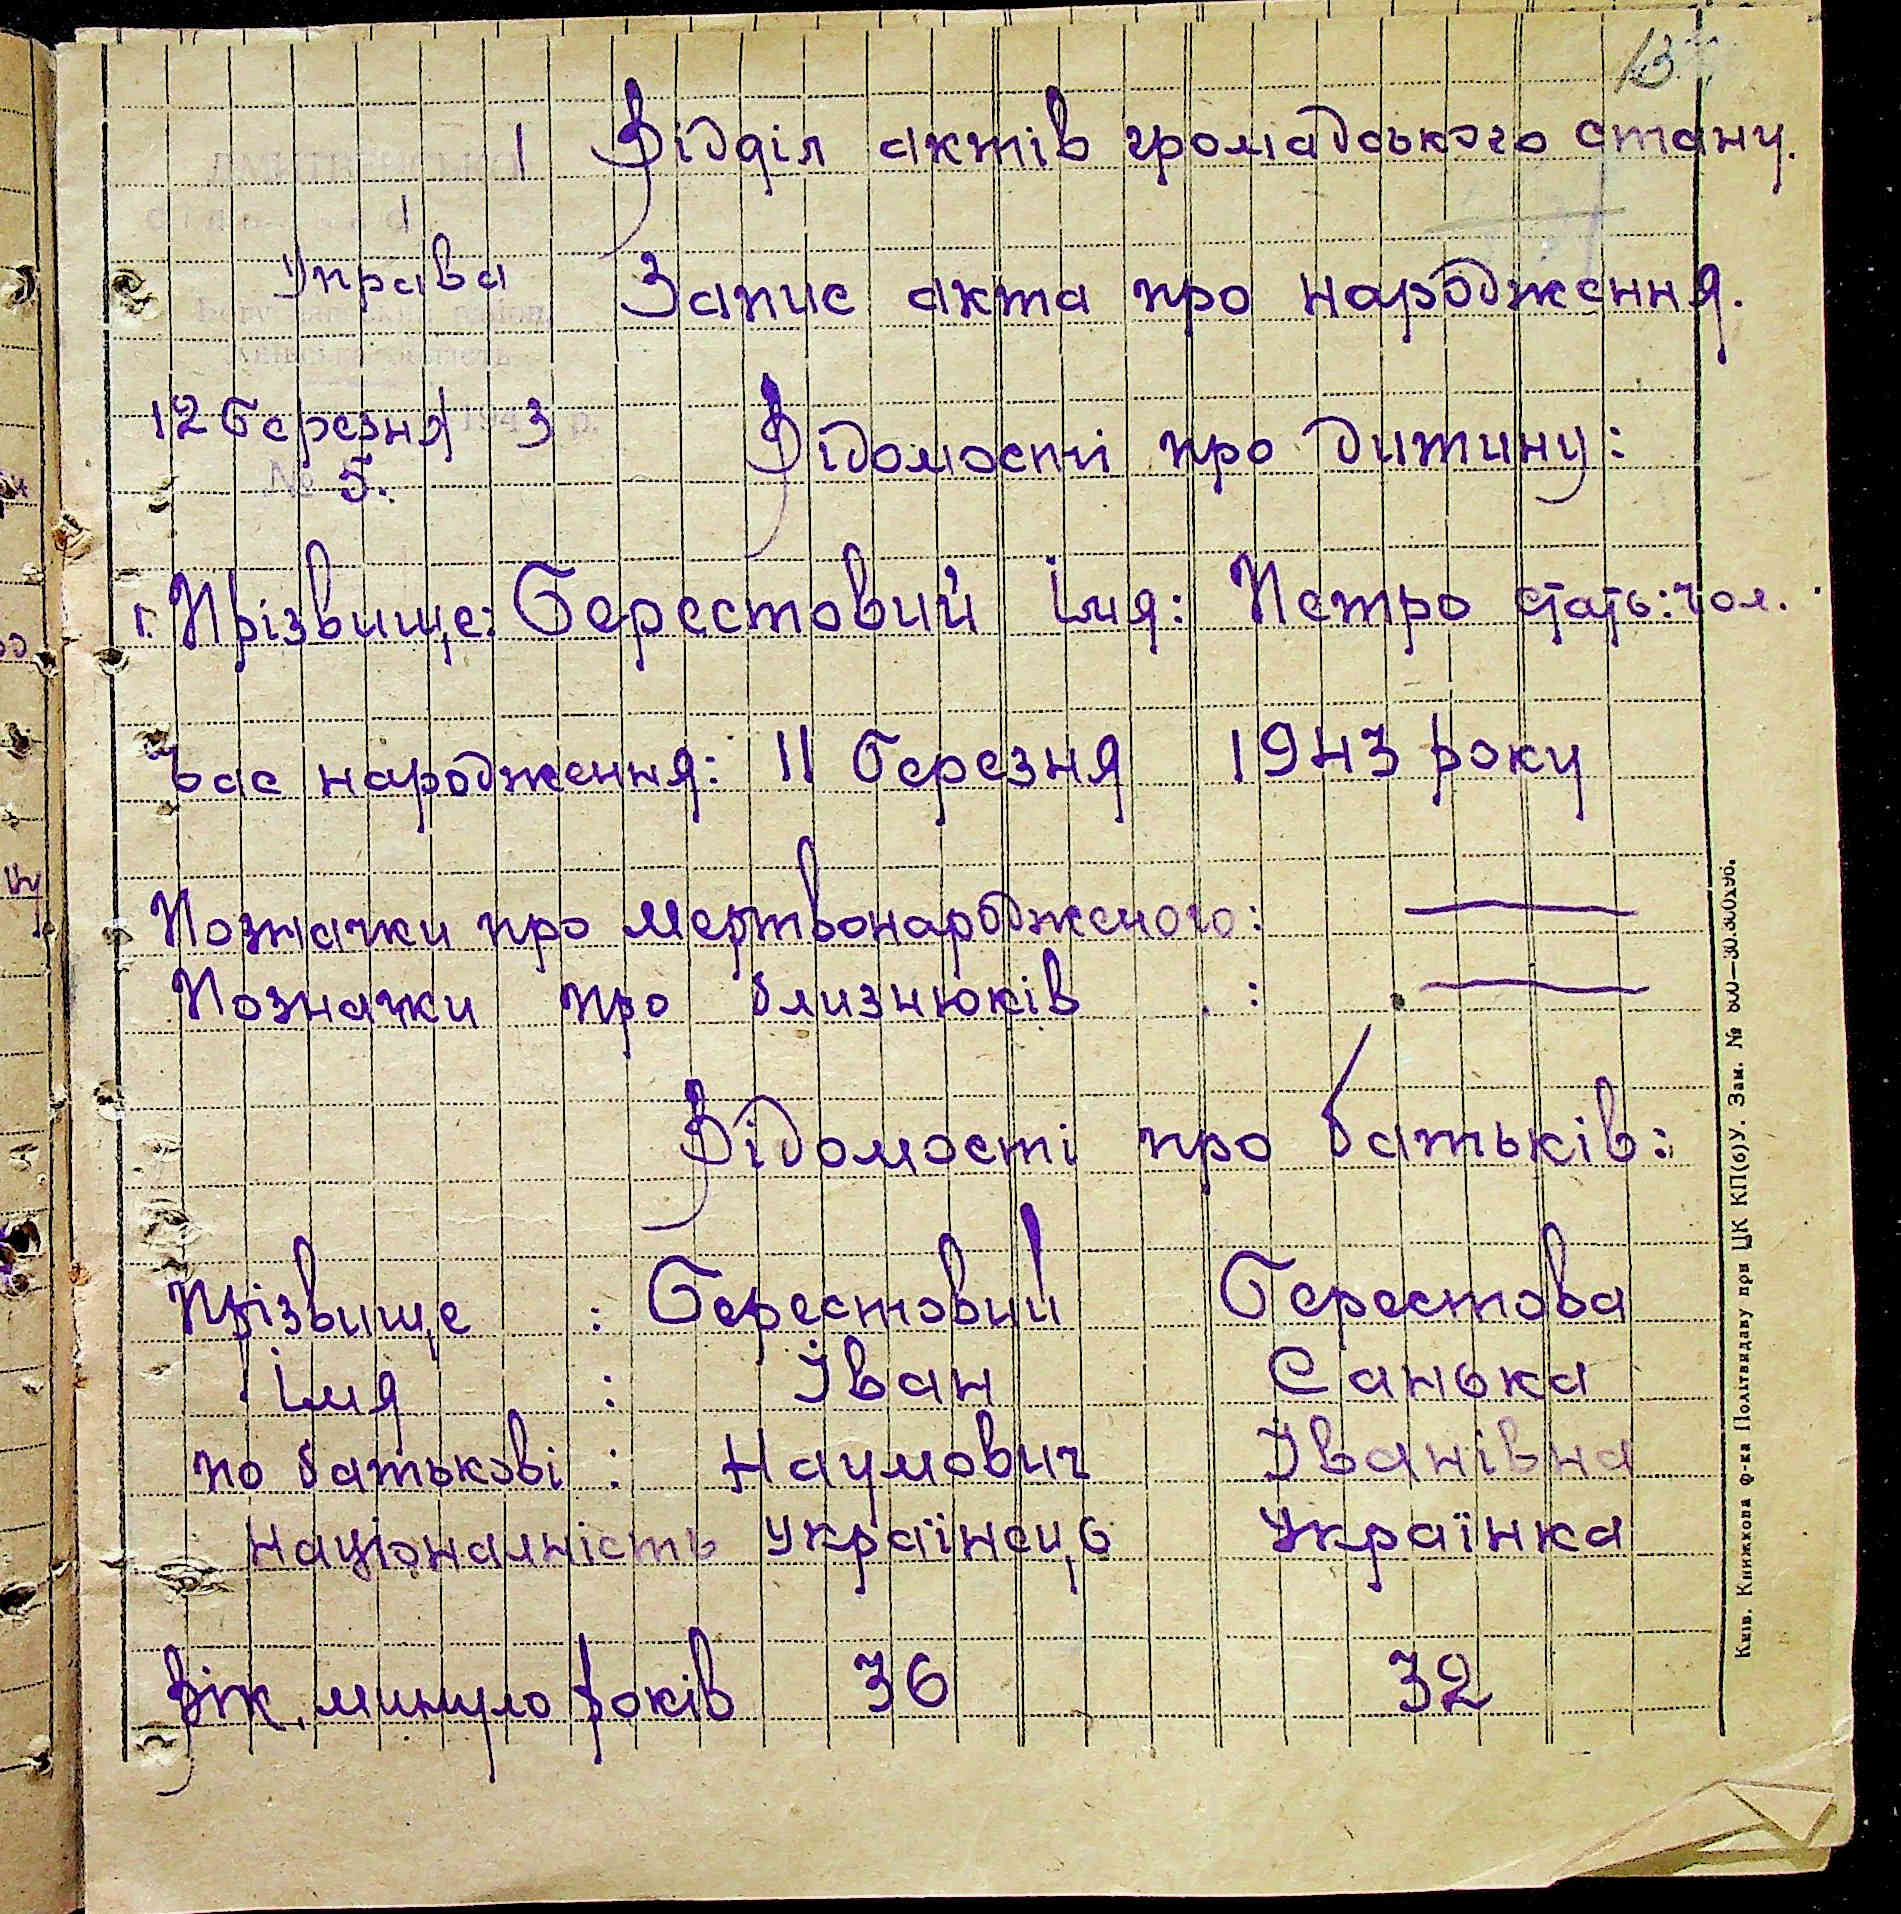 13
Відділ актів громадського стану.
Управа
Запис акта про народження.
12 березня 1943 р.
№ 5.
Відомості про дитину:
1. Прізвище: Берестовий Імя: Петро стать: чол.
Час народження: 11 березня 1943 року
Позначки про мертвонародженого: —
Позначки про близнюків : —
Відомості про батьків:
Прізвище : Берестовий Берестова
Імя : Іван Санька
по батькові : Наумович Іванівна
Національність Українець Українка
Вік, минуло років 36 32
Київ. Книжкова ф-ка Політвидаву при ЦК КП(б)У. Зам. №